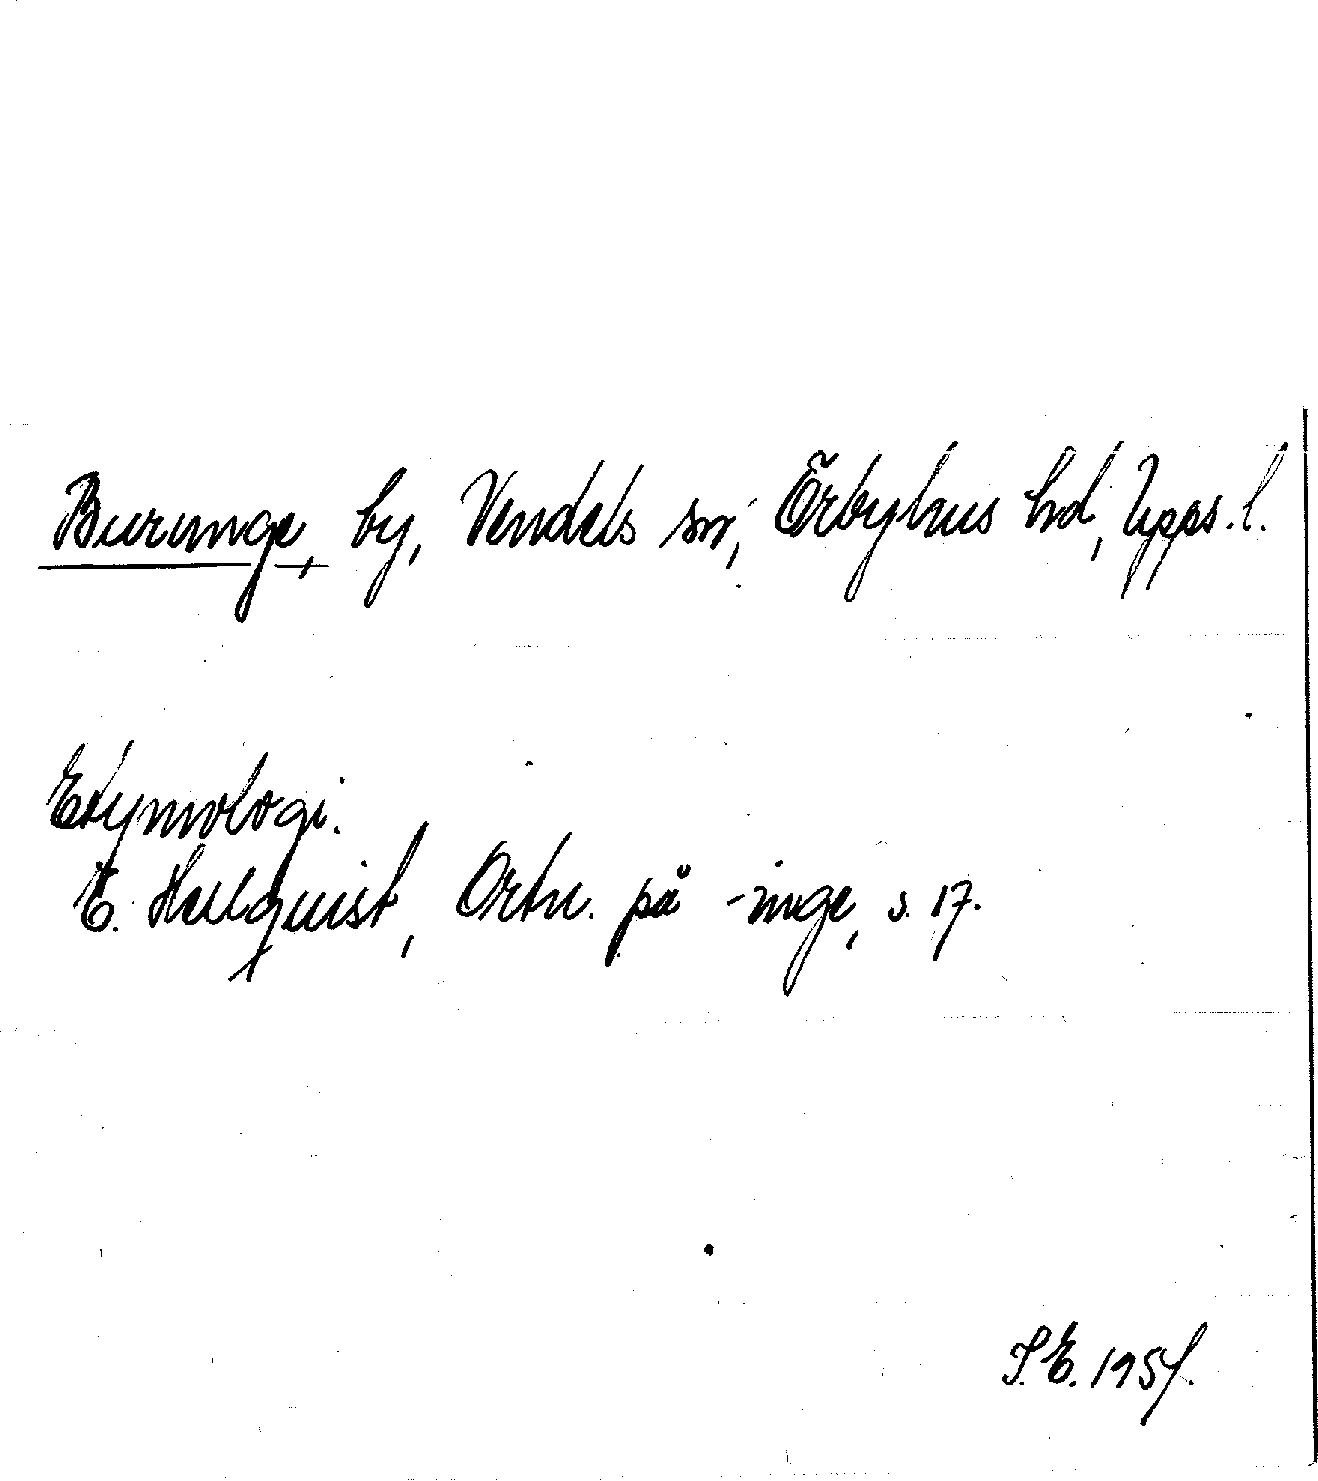 Burunge, by, Vendels sn, Örbyhus hd, Upps. l.
Etymologi.
E. Hellquist, Ortn. på -inge, s. 17.
S.E. 1957.